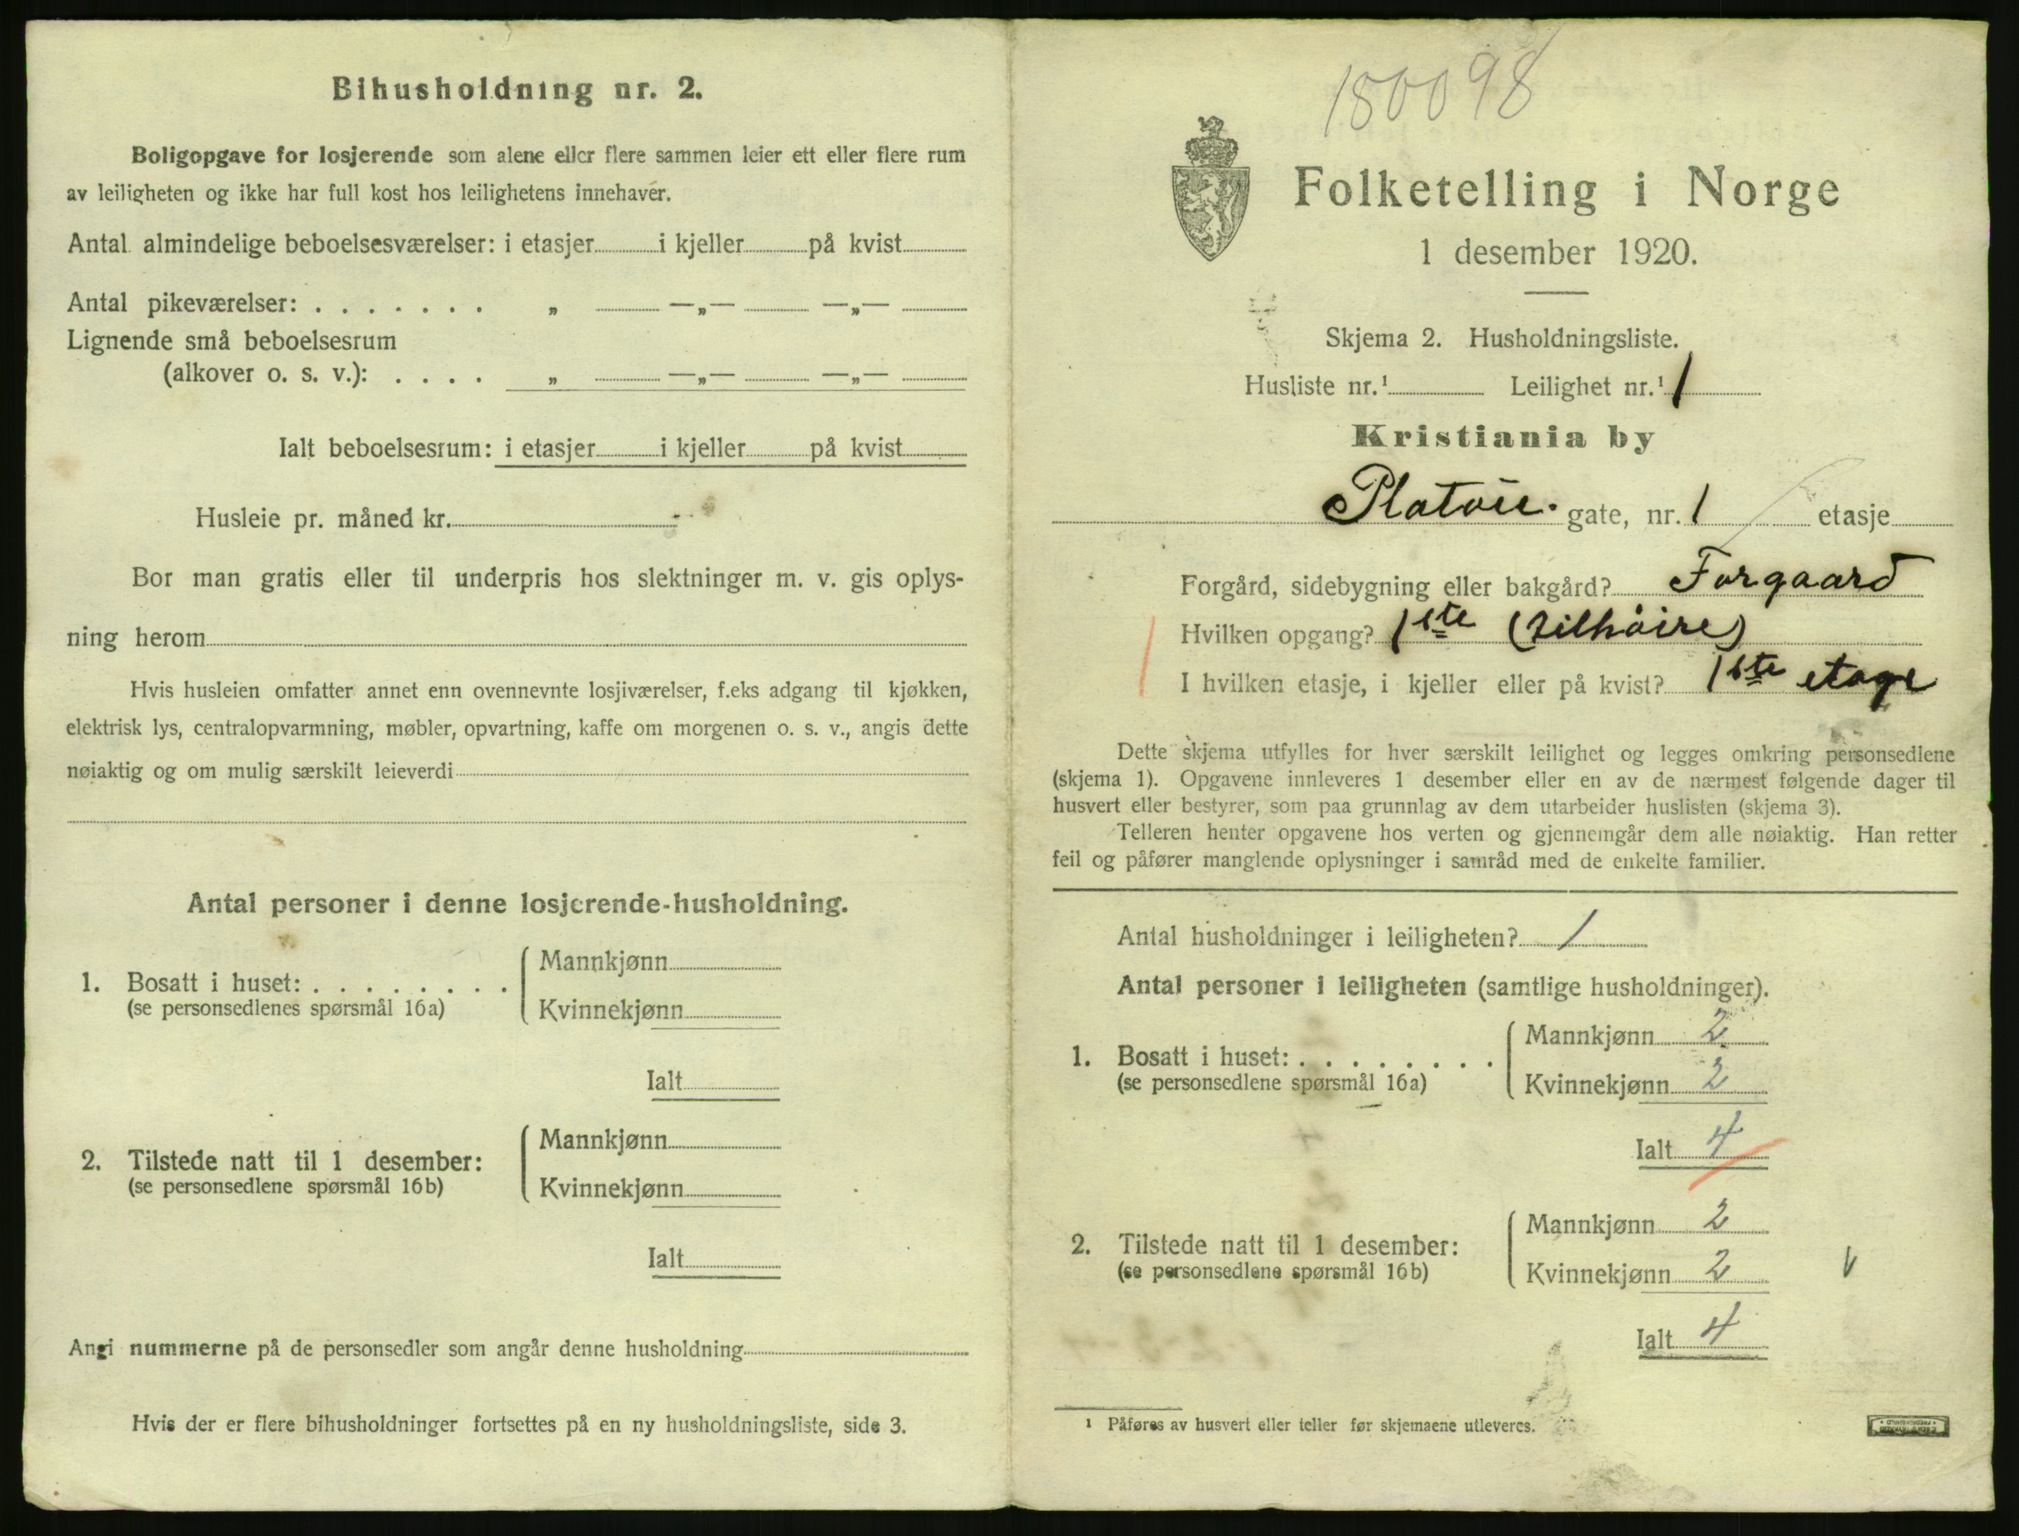 Bihusholdning nr. 2.
Boligopgave for losjerende som alene eller flere sammen leier ett eller flere rum
av leiligheten og ikke har full kost hos leilighetens innehaver.
Antal almindelige beboelsesværelser: i etasjer i kjeller på kvist
Antal pikeværelser: . . . . . . . „ —„— —„—
Lignende små beboelsesrum
(alkover o. s. v.): . . . . „ —„— —„—
Ialt beboelsesrum: i etasjer i kjeller på kvist
Husleie pr. måned kr.
Bor man gratis eller til underpris hos slektninger m. v. gis oplys-
ning herom
Hvis husleien omfatter annet enn ovennevnte losjiværelser, f.eks adgang til kjøkken,
elektrisk lys, centralopvarmning, møbler, opvartning, kaffe om morgenen o. s. v., angis dette
nøiaktig og om mulig særskilt leieverdi
Antal personer i denne losjerende-husholdning.
1. Bosatt i huset: . . . . . . . .
(se personsedlenes spørsmål 16a)
Mannkjønn
Kvinnekjønn
Ialt
2. Tilstede natt til 1 desember:
(se personsedlene spørsmål 16b)
Mannkjønn
Kvinnekjønn
Ialt
Angi nummerne på de personsedler som angår denne husholdning
Hvis der er flere bihusholdninger fortsettes på en ny husholdningsliste, side 3.
180098
Folketelling i Norge
1 desember 1920.
Skjema 2. Husholdningsliste.
Husliste nr.¹ Leilighet nr.¹ 1
Kristiania by
Platous gate, nr. 1 etasje
Forgård, sidebygning eller bakgård? Forgaard
Hvilken opgang? 1ste (tilhøire)
I hvilken etasje, i kjeller eller på kvist? 1ste etage
Dette skjema utfylles for hver særskilt leilighet og legges omkring personsedlene
(skjema 1). Opgavene innleveres 1 desember eller en av de nærmest følgende dager til
husvert eller bestyrer, som paa grunnlag av dem utarbeider huslisten (skjema 3).
Telleren henter opgavene hos verten og gjennemgår dem alle nøiaktig. Han retter
feil og påfører manglende oplysninger i samråd med de enkelte familier.
Antal husholdninger i leiligheten? 1
Antal personer i leiligheten (samtlige husholdninger).
1. Bosatt i huset: . . . . . . . .
(se personsedlene spørsmål 16a)
Mannkjønn 2
Kvinnekjønn 2
Ialt 4
2. Tilstede natt til 1 desember:
(se personsedlene spørsmål 16b)
Mannkjønn 2
Kvinnekjønn 2
Ialt 4
¹ Påføres av husvert eller teller før skjemaene utleveres.